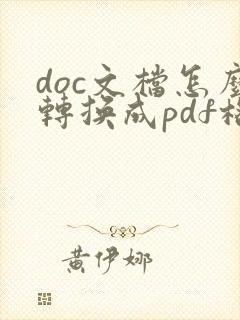 doc文檔怎麼
轉換成pdf格
黄伊娜